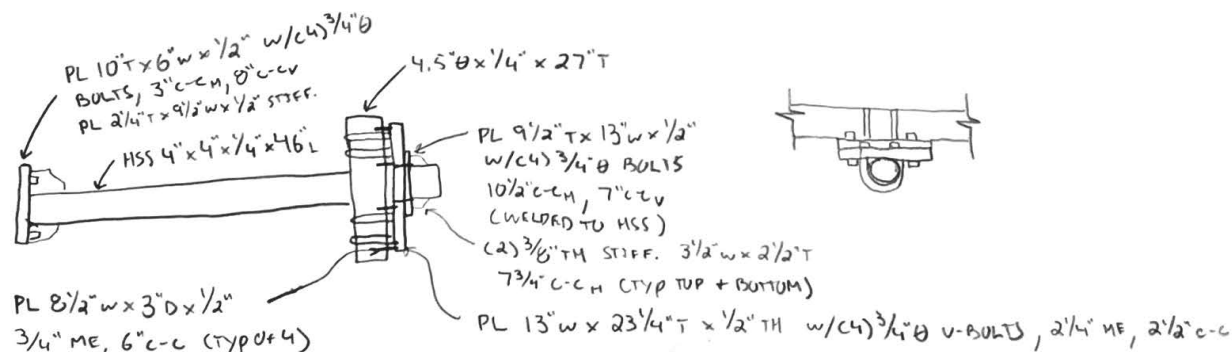 PL 10"T x 6"W x 1/2" W/(4) 3/4"θ
BOLTS, 3"C-C H, 8"C-C V
PL 2 1/4"T x 9 1/2"W x 1/2" STIFF.
HSS 4" x 4" x 1/4" x 46"L
4.5"θ x 1/4" x 27"T
PL 9 1/2"T x 13"W x 1/2"
W/(4) 3/4"θ BOLTS
10 1/2"C-C H, 7"C-C V
(WELDED TO HSS)
(2) 3/8"TH STIFF. 3 1/2"W x 2 1/2"T
7 3/4"C-C H (TYP TOP + BOTTOM)
PL 8 1/2"W x 3"D x 1/2"
3/4" ME, 6"C-C (TYP OF 4)
PL 13"W x 23 1/4"T x 1/2"TH W/(4) 3/4"θ U-BOLTS, 2 1/4" ME, 2 1/2"C-C